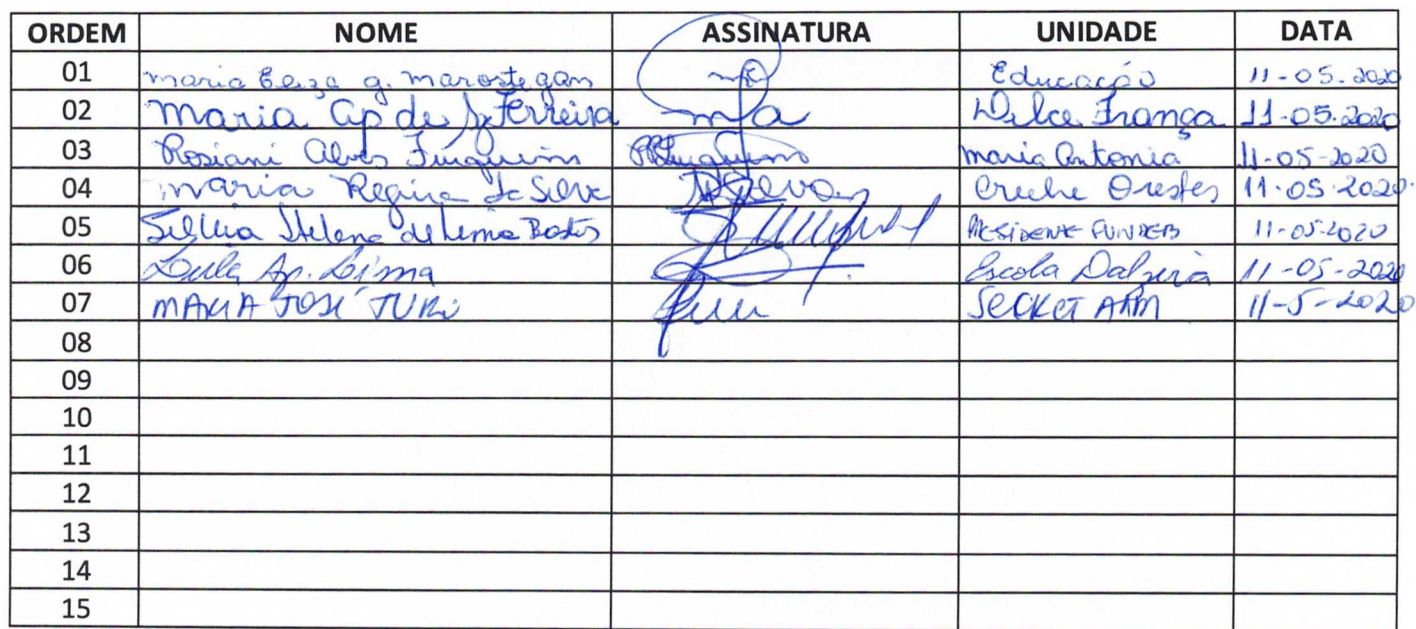 ORDEM NOME ASSINATURA UNIDADE DATA
01 maria g. marostegan Educação 11-05-2020
02 Maria Ap de Ferreira Dulce França 11-05-2020
03 Rosiani Alves maria Antonia 11-05-2020
04 maria Regina da Silva Creche Orestes 11-05-2020
05 Silvia Helena de Lima Bastos PRESIDENTE FUNDEB 11-05-2020
06 Ap. Escola 11-05-2020
07 MARIA JOSÉ 11-5-2020
08
09
10
11
12
13
14
15